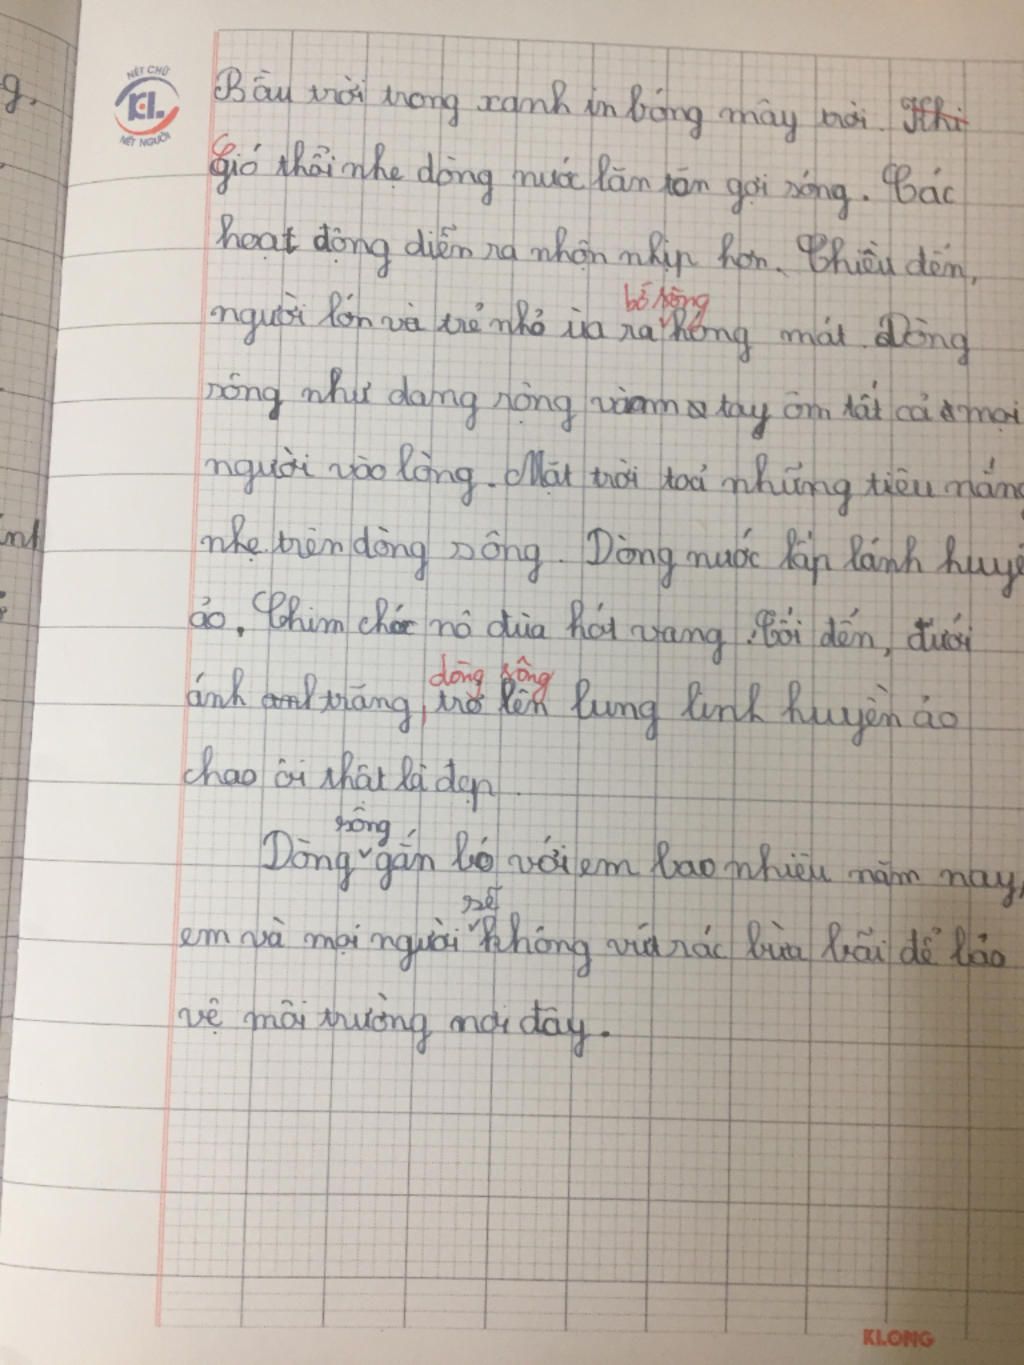 g.
NÉT CHỮ
KL
NÉT NGƯỜI
Bầu trời trong xanh in bóng mây trời. Khi
gió thổi nhẹ dòng nước lăn tăn gợi sóng. Các
hoạt động diễn ra nhộn nhịp hơn. Chiều đến,
bờ sông
người lớn và trẻ nhỏ ùa ra hóng mát. Dòng
sông như dang rộng tay ôm tất cả mọi
người vào lòng. Mặt trời toả những tiêu nắng
nhẹ trên dòng sông. Dòng nước lấp lánh huyề
ảo. Chim chóc nô đùa hót vang. Tối đến, dưới
dòng sông
ánh trăng, trở lên lung linh huyền ảo
chao ôi thật là đẹp.
sông
Dòng gắn bó với em bao nhiêu năm nay,
sẽ
em và mọi người không vứt rác bừa bãi để bảo
vệ môi trường nơi đây.
KLONG